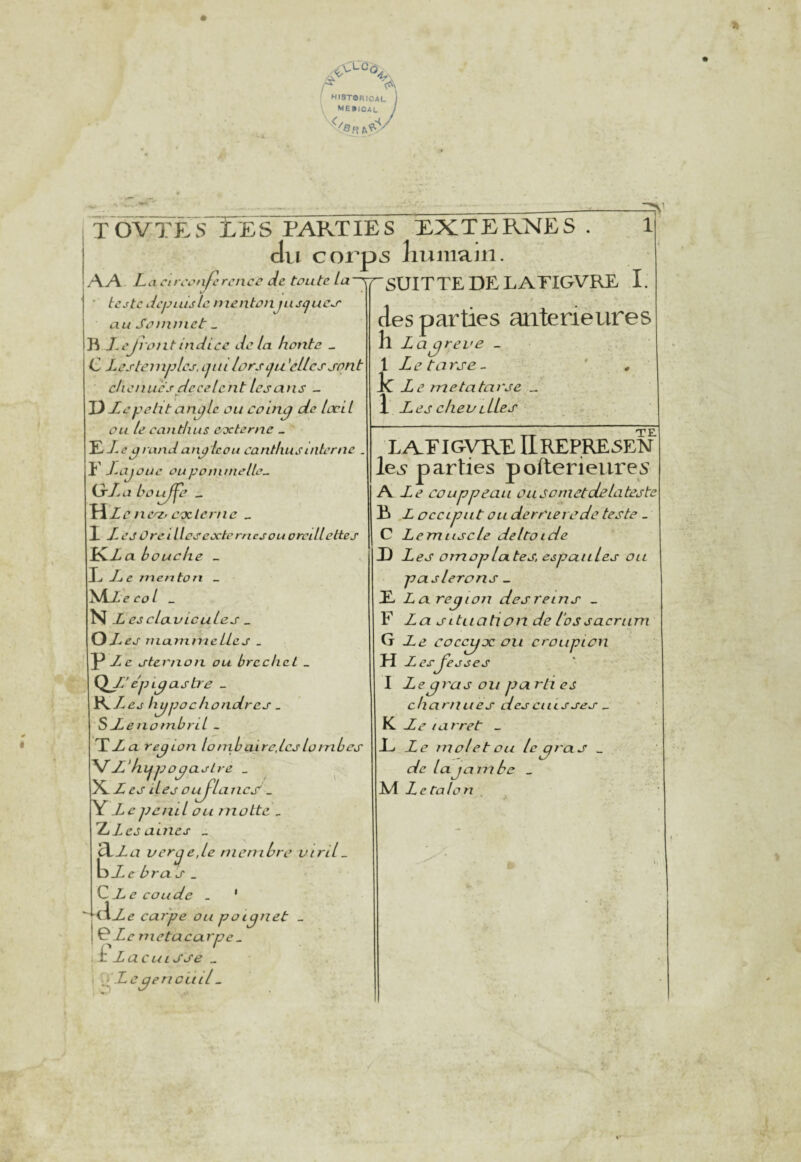 WELLCOME
HISTORICAL
MEDICAL
LIBRARY
TOVTES LES PARTIES EXTERNES. 1
du corps humain.
AA La circonference de toute la
teste depuis le menton jusques
au Sommet
B Le front indice de la honte
C Les temples, qui lors qu'elles sont
chenuës decelent les ans
D Le petit angle ou coing de lœil
ou le canthus externe
E Le grand angle ou canthus interne
F La joue ou pommelle
G La bouffe
H Le nez externe
I Les Oreilles externes ou oreillettes
K La bouche
L Le menton
M Le col
N Les clavicules
O Les mammelles
P Le sternon ou brechet
Q L'épigastre
R Les hypochondres
S Le nombril
T La region lombaire, les lombes
V L'hypogastre
X Les iles ou flancs
Y Le penil ou motte
Z Les aines
a La verge, le membre viril
b Le bras
c Le coude
d Le carpe ou poignet
e Le metacarpe
f La cuisse
g Le genouil
SUITTE DE LA FIGVRE I.
des parties anterieures
h La greve
i Le tarse
k Le metatarse
l Les chevilles
LA FIGVRE II REPRESENTE
les parties posterieures
A Le couppeau ou somet de la teste
B L occiput ou derriere de teste
C Le muscle deltoide
D Les omoplates, espaules ou
paslerons
E La region des reins
F La situation de l'os sacrum
G Le coccyx ou croupion
H Les fesses
I Le gras ou parties
charnues des cuisses
K Le iarret
L Le molet ou le gras
de la jambe
M Le talon